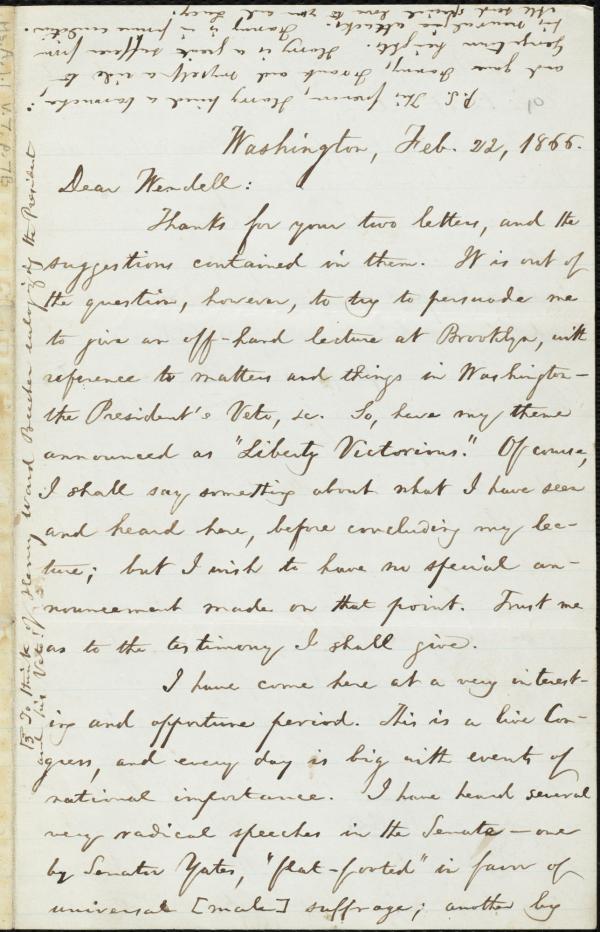 P.S. This forenoon, Harry hired a barouche,
and gave Fanny, Frank and myself a ride to
Georgetown heights. Harry is a great sufferer from
his neuralgic attack. Fanny is in prime condition.
All send special love to you and Lucy.
10
Washington, Feb. 22, 1866.
Dear Wendell:
Thanks for your two letters, and the
suggestions contained in them. It is out of
the question, however, to try to persuade me
to give an off-hand lecture at Brooklyn, with
reference to matters and things in Washington—
the President's Veto, &c. So, have my theme
announced as "Liberty Victorious." Of course,
I shall say something about what I have seen
and heard here, before concluding my lec-
ture; but I wish to have no special an-
nouncement made on that point. Trust me
as to the testimony I shall give.
I have come here at a very interest-
ing and opportune period. This is a live Con-
gress, and every day is big with events of
national importance. I have heard several
very radical speeches in the Senate—one
by Senator Yates, "flat-footed" in favor of
universal [male] suffrage; another by
To think of Henry Ward Beecher eulogizing the President
and his Veto!